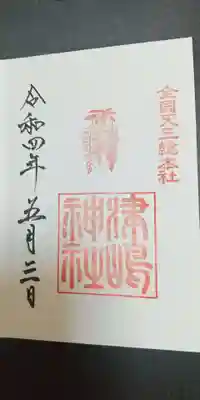 全国天王総本社
津嶋
神社
令和四年 五月三日